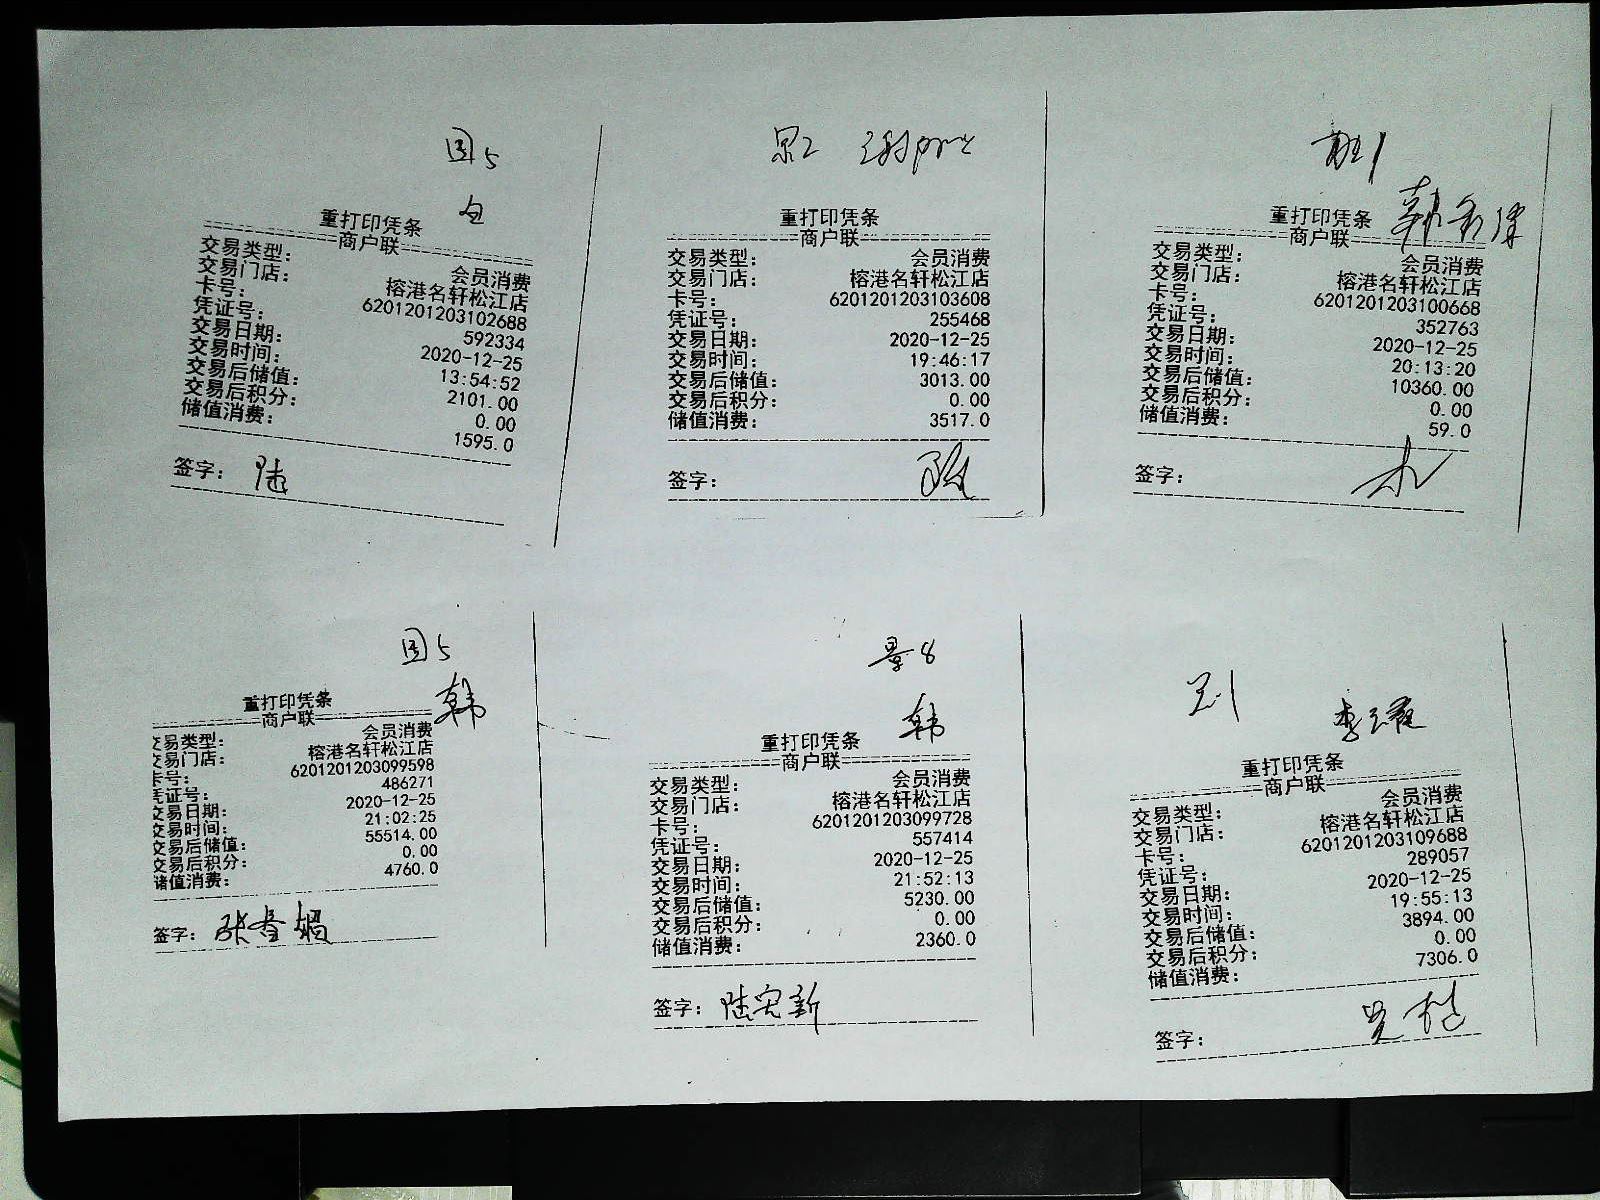 国5
重打印凭条
商户联
交易类型: 会员消费
交易门店: 榕港名轩松江店
卡号: 6201201203102688
凭证号: 592334
交易日期: 2020-12-25
交易时间: 13:54:52
交易后储值: 2101.00
交易后积分: 0.00
储值消费: 1595.0
签字: 陆
重打印凭条
商户联
交易类型: 会员消费
交易门店: 榕港名轩松江店
卡号: 6201201203103608
凭证号: 255468
交易日期: 2020-12-25
交易时间: 19:46:17
交易后储值: 3013.00
交易后积分: 0.00
储值消费: 3517.0
签字:
重打印凭条
商户联
交易类型: 会员消费
交易门店: 榕港名轩松江店
卡号: 6201201203100668
凭证号: 352763
交易日期: 2020-12-25
交易时间: 20:13:20
交易后储值: 10360.00
交易后积分: 0.00
储值消费: 59.0
签字:
国5
韩
重打印凭条
商户联
交易类型: 会员消费
交易门店: 榕港名轩松江店
卡号: 6201201203099598
凭证号: 486271
交易日期: 2020-12-25
交易时间: 21:02:25
交易后储值: 55514.00
交易后积分: 0.00
储值消费: 4760.0
签字:
景8
韩
重打印凭条
商户联
交易类型: 会员消费
交易门店: 榕港名轩松江店
卡号: 6201201203099728
凭证号: 557414
交易日期: 2020-12-25
交易时间: 21:52:13
交易后储值: 5230.00
交易后积分: 0.00
储值消费: 2360.0
签字: 陆宏新
重打印凭条
商户联
交易类型: 会员消费
交易门店: 榕港名轩松江店
卡号: 6201201203109688
凭证号: 289057
交易日期: 2020-12-25
交易时间: 19:55:13
交易后储值: 3894.00
交易后积分: 0.00
储值消费: 7306.0
签字: